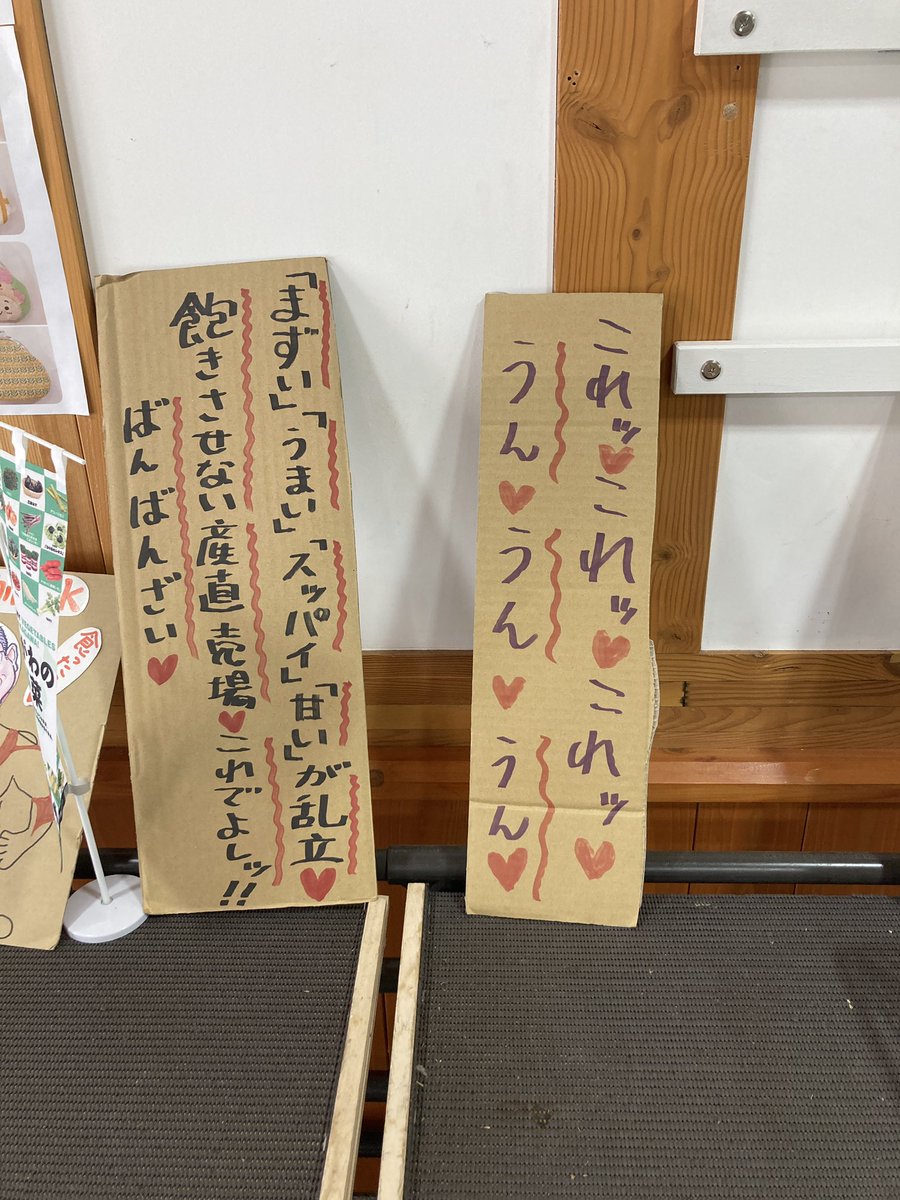 これッ♥これッ♥これッ♥
うん♥うん♥うん♥
「まずい」「うまい」「スッパイ」「甘い」が乱立♥
飽きさせない産直売場♥これでよしッ!!
ばんばんざい♥
食った
K
VEGETABLES
わの
菜